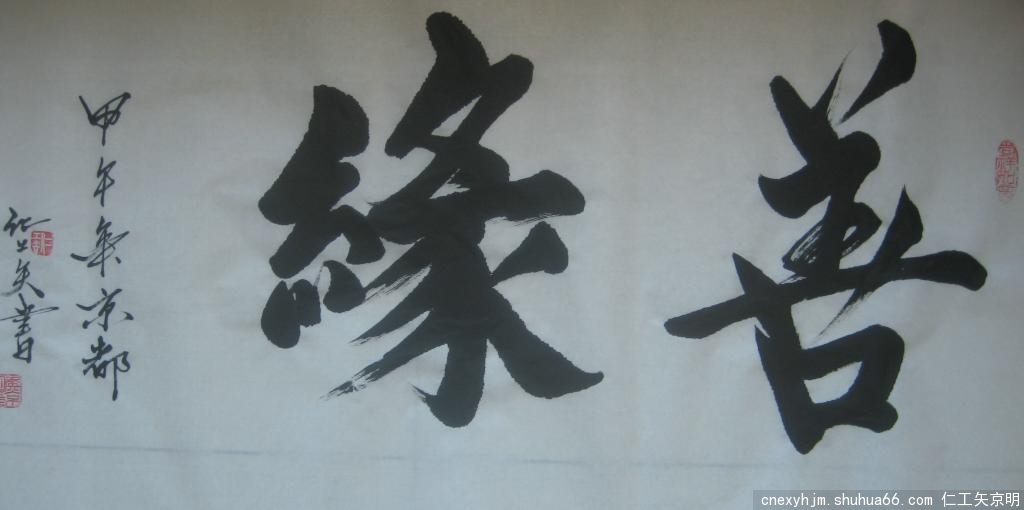 善緣
甲午年京都
仁工矢書
cnexyhjm.shuhua66.com 仁工矢京明